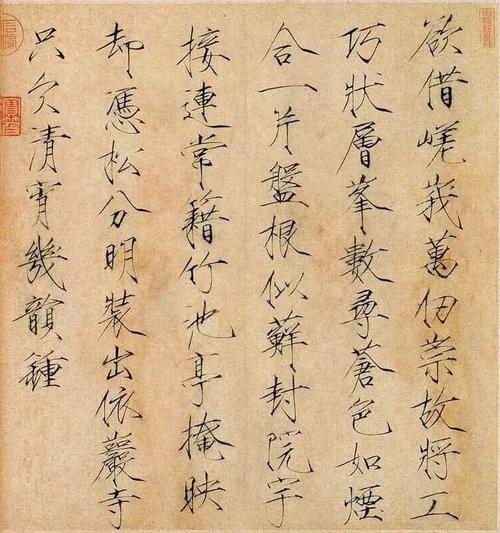 欲借嶢峩萬仞崇故將工
巧狀層峯數尋蒼色如煙
合一片盤根似蘚封院宇
接連常籍竹池亭掩映
却憑松分明裝出依巖寺
只欠清宵幾韻鍾